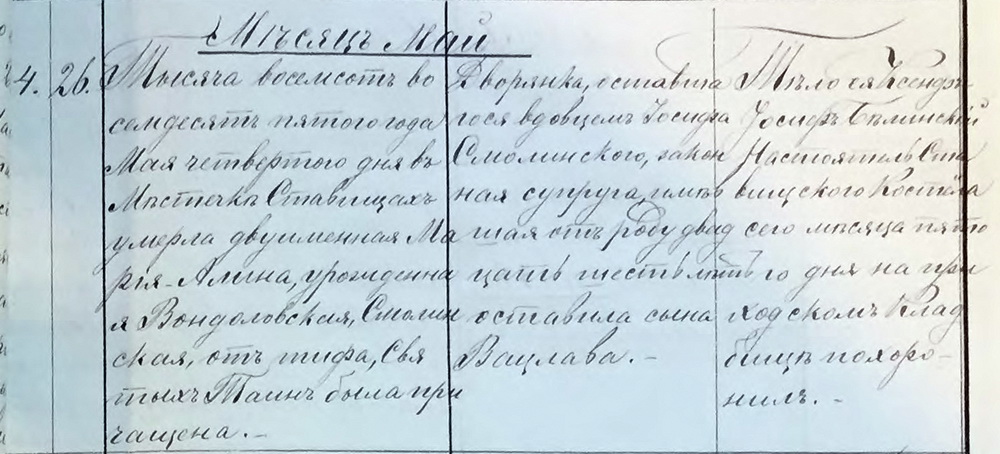 Мѣсяцъ Май
4.
26.
Тысяча восемсотъ во
семдесятъ пятого года
Мая четвертого дня въ
Мѣстечкѣ Ставищахъ
умерла двуименная Ма
рія-Алина, урожденна
я Вондоловская, Смолин
ская, отъ тифа, Свя
тыхъ Таинъ была при
чащена. –
Дворянка, оставша
гося вдовцемъ Іосифа
Смолинского, закон
ная супруга, имѣв
шая отъ роду двад
цать шесть лѣтъ,
оставила сына
Вацлава. –
Тѣло ея Ксендзъ
Іосифъ Бѣлинскій
Настоятель Ста
вищского Костела
сего мѣсяца пято
го дня на при
ходскомъ Клад
бищѣ похоро-
нилъ. –